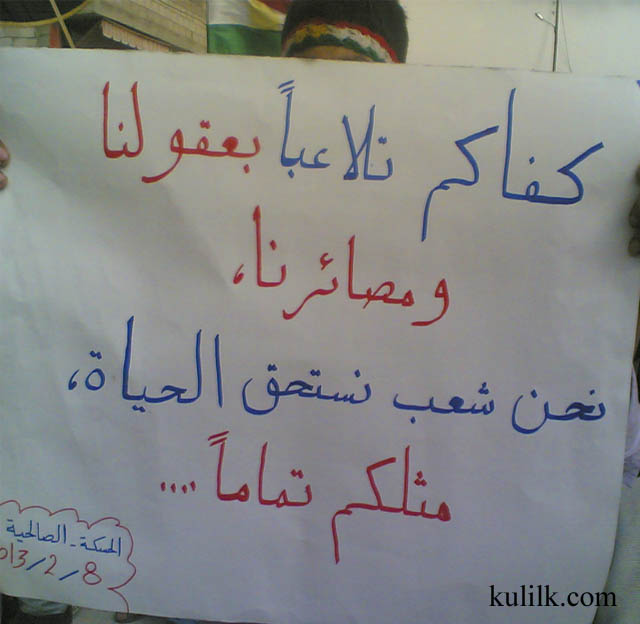 كفاكم تلاعباً بعقولنا
ومصائرنا،
نحن شعب نستحق الحياة،
مثلكم تماماً ....
الحسكة - الصالحية
2013/2/8
kulilk.com